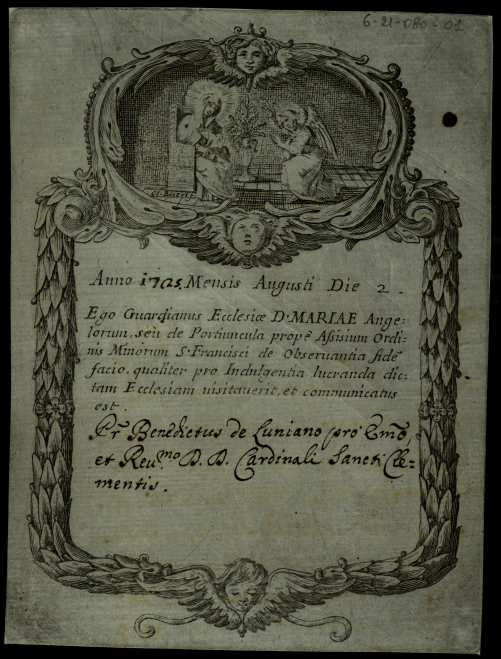 6-21-080-01
Anno 1725. Mensis Augusti Die 2.
Ego Guardianus Ecclesiæ D. MARIAE Ange-
lorum, seù de Portiuncula propè Assisium Ordi-
nis Minorum S. Francisci de Obseruantia fidē
facio, qualiter pro Indulgentia lucranda dic-
tam Ecclesiam uisitauerit, et communicatus
est
Pr. Benedictus de Luniano pro Emō,
et Reu.mo D. D. Cardinali Sancti Cle-
mentis.